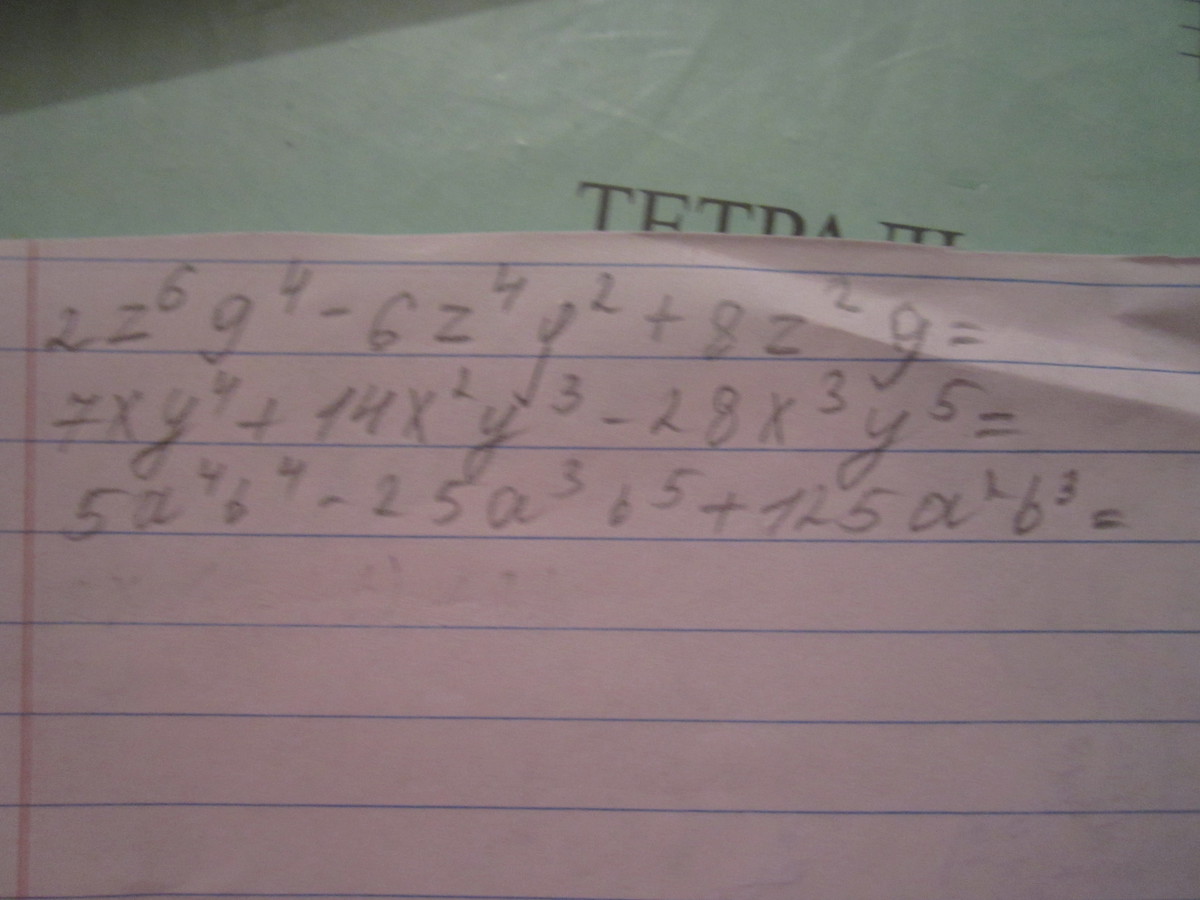 ТЕТРАДЬ
2z⁶g⁴ - 6z⁴y² + 8z²g =
7xy⁴ + 14x²y³ - 28x³y⁵ =
5a⁴b⁴ - 25a³b⁵ + 125a²b³ =